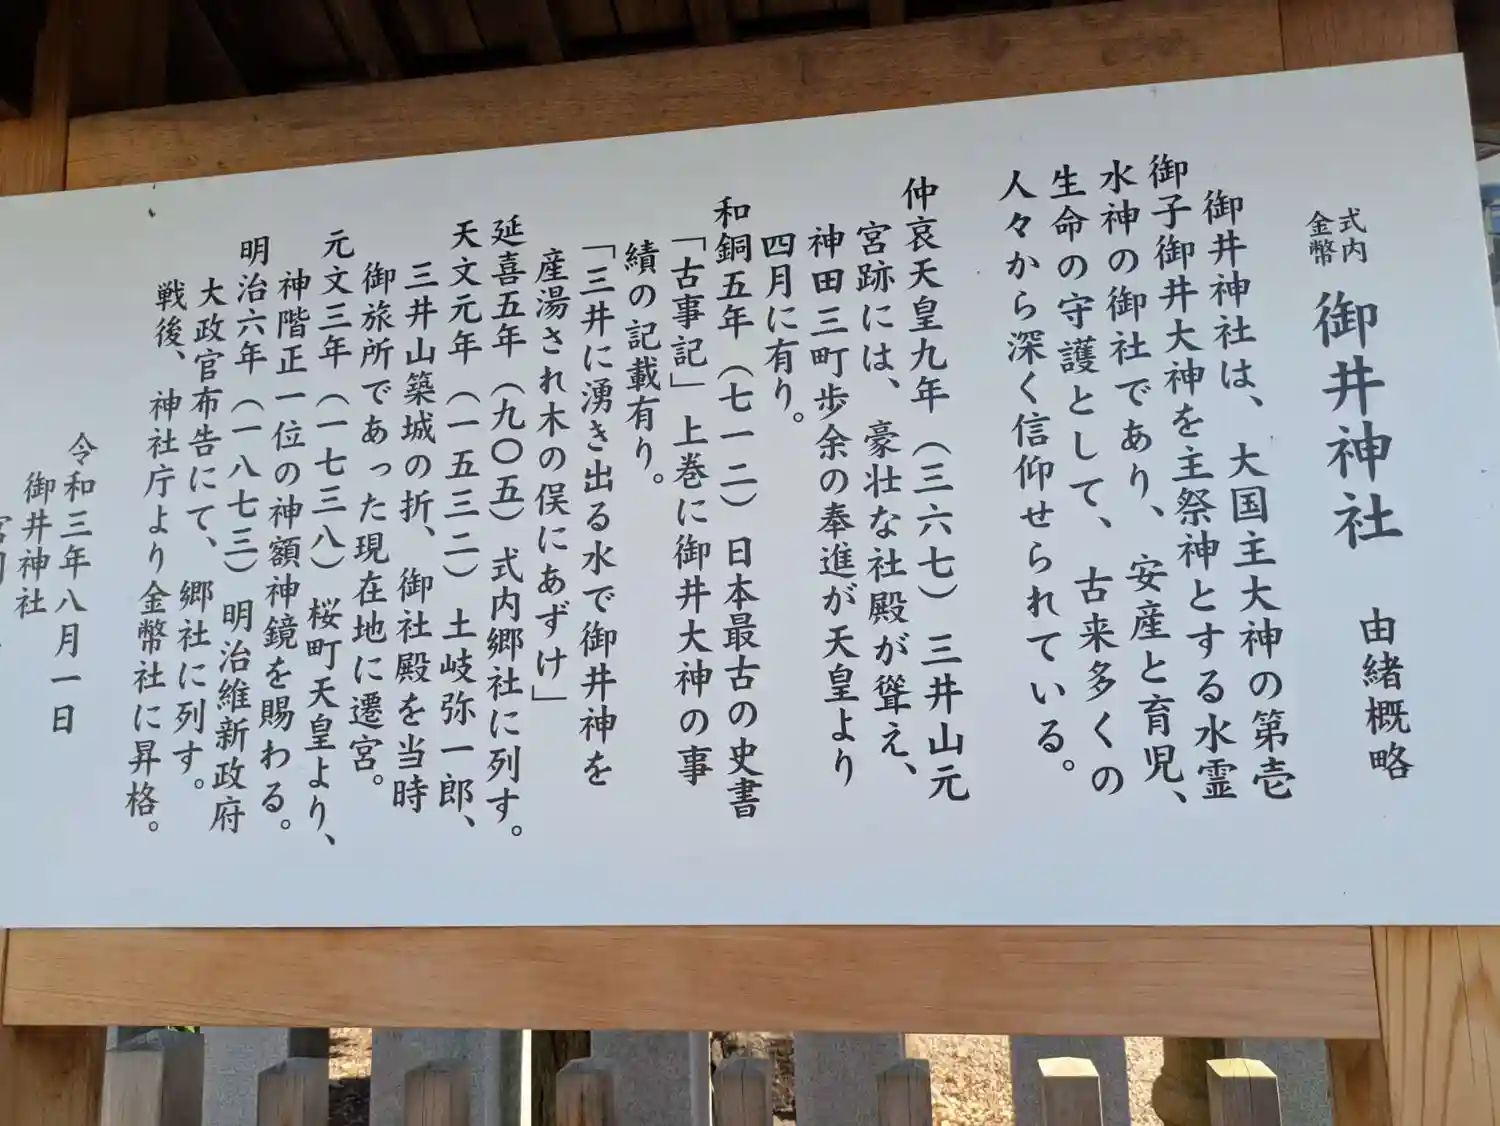 式内
金幣
御井神社 由緒概略
御井神社は、大国主大神の第壱
御子御井大神を主祭神とする水霊
水神の御社であり、安産と育児、
生命の守護として、古来多くの
人々から深く信仰せられている。
仲哀天皇九年（三六七）三井山元
宮跡には、豪壮な社殿が聳え、
神田三町歩余の奉進が天皇より
四月に有り。
和銅五年（七一二）日本最古の史書
「古事記」上巻に御井大神の事
績の記載有り。
「三井に湧き出る水で御井神を
産湯され木の俣にあずけ」
延喜五年（九〇五）式内郷社に列す。
天文元年（一五三二）土岐弥一郎、
三井山築城の折、御社殿を当時
御旅所であった現在地に遷宮。
元文三年（一七三八）桜町天皇より、
神階正一位の神額神鏡を賜わる。
明治六年（一八七三）明治維新政府
大政官布告にて、郷社に列す。
戦後、神社庁より金幣社に昇格。
令和三年八月一日
御井神社